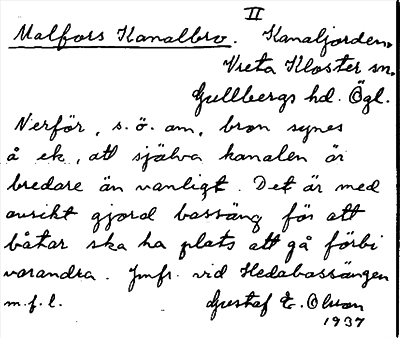 II
Malfors Kanalbro. Kanaljorden.
Vreta Kloster sn.
Gullbergs hd. Ögl.
Nerför, s.ö. om, bron synes
å ek., att själva kanalen är
bredare än vanligt. Det är med
avsikt gjord bassäng för att
båtar ska ha plats att gå förbi
varandra. Jmfr. vid Hedabassängen
m.f.l. Gustaf E. Olsson
1937